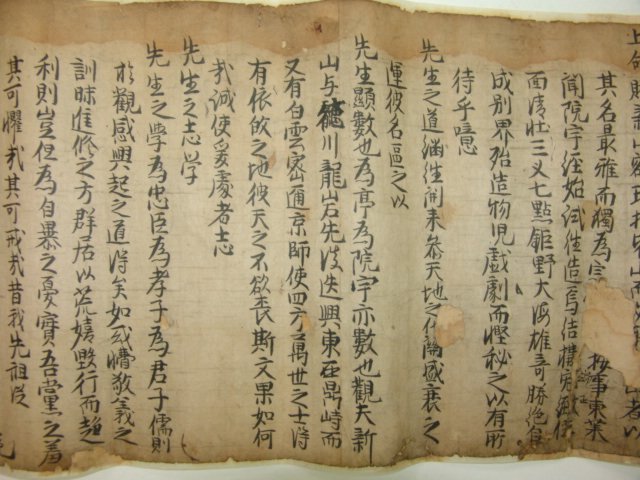 其名最雅而獨為
聞院宇經始試往造焉結構
面清壯三叉七點鉅野大海雄奇勝絶
成别界殆造物兒戲劇而慳秘之以有所
待乎噫
先生之道繼往開來叅天地之 盛衰之
運彼名區之以
先生顯數也為亭為院宇亦數也觀夫新
山与德川龍岩先後迭興東西鼎峙而
又有白雲密邇京師使四方萬世之士得
有依歸之地彼天之不欲喪斯文果如何
我誠使爰處者志
先生之志学
先生之學為忠臣為孝子為君子儒則
於觀感興起之道得矣如或懵敬義之
訓昧進修之方群居以荒嬉毁行而趨
利則豈但為自暴之憂實吾黨之羞
其可懼我其可戒我昔我先祖